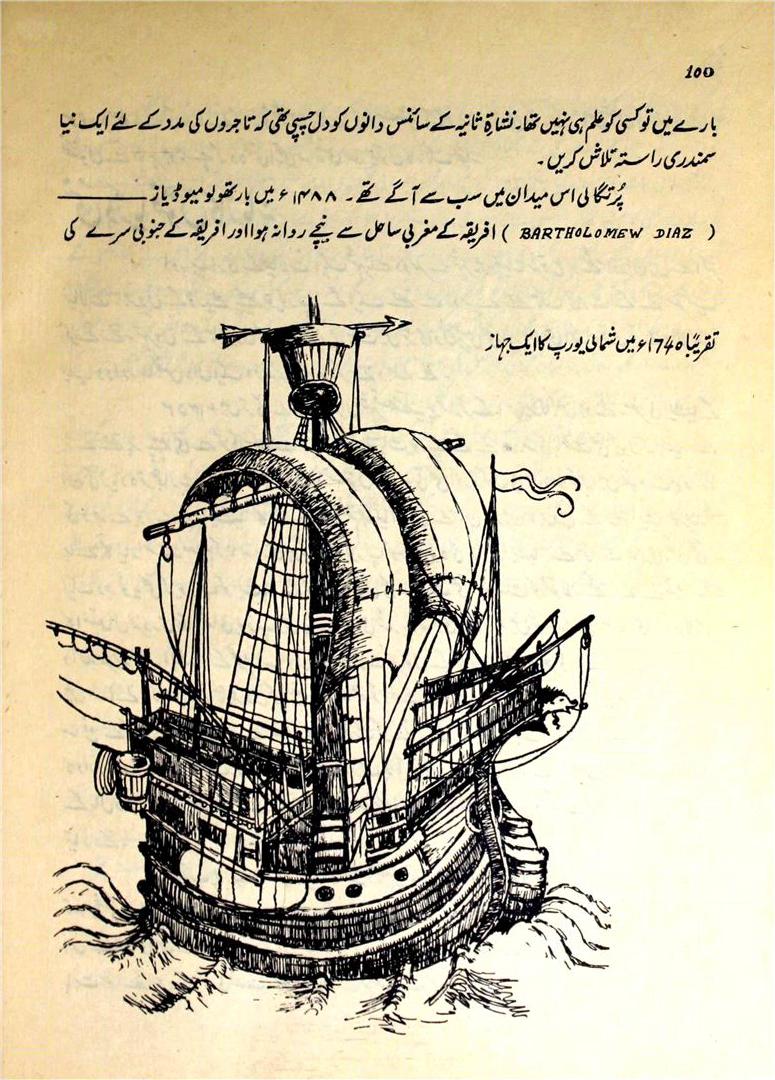 100
بارے میں تو کسی کو علم ہی نہیں تھا۔ نشاۃ ثانیہ کے سائنس دانوں کو دل چسپی تھی کہ تاجروں کی مدد کے لئے ایک نیا
سمندری راستہ تلاش کریں۔
پُرتگالی اس میدان میں سب سے آگے تھے۔ ۱۴۸۸ء میں بارتھولومیو ڈیاز
( BARTHOLOMEW DIAZ ) افریقہ کے مغربی ساحل سے نیچے روانہ ہوا اور افریقہ کے جنوبی سرے کی
تقریبًا ۱۴۶۵ء میں شمالی یورپ کا ایک جہاز